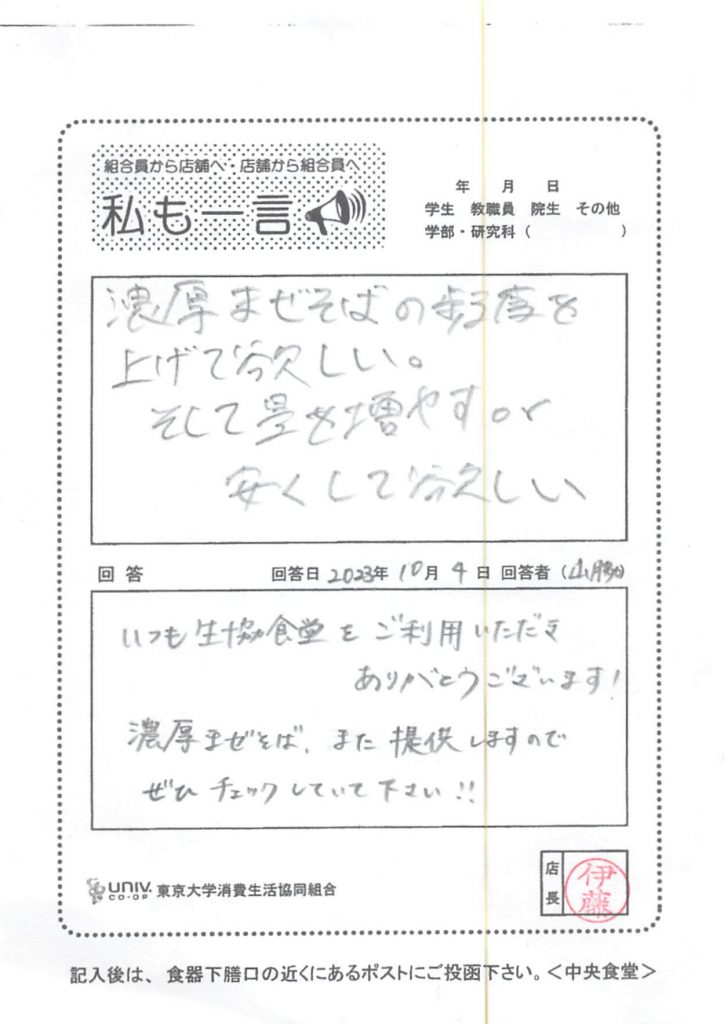 組合員から店舗へ・店舗から組合員へ
私も一言
年 月 日
学生 教職員 院生 その他
学部・研究科（ ）
濃厚まぜそばの頻度を
上げて欲しい。
そして量を増やすor
安くして欲しい
回答 回答日 2023年 10月 4日 回答者（山勝）
いつも生協食堂をご利用いただき
ありがとうございます！
濃厚まぜそば、また提供しますので
ぜひチェックしていて下さい!!
UNIV. CO-OP 東京大学消費生活協同組合
店長 伊藤
記入後は、食器下膳口の近くにあるポストにご投函下さい。＜中央食堂＞